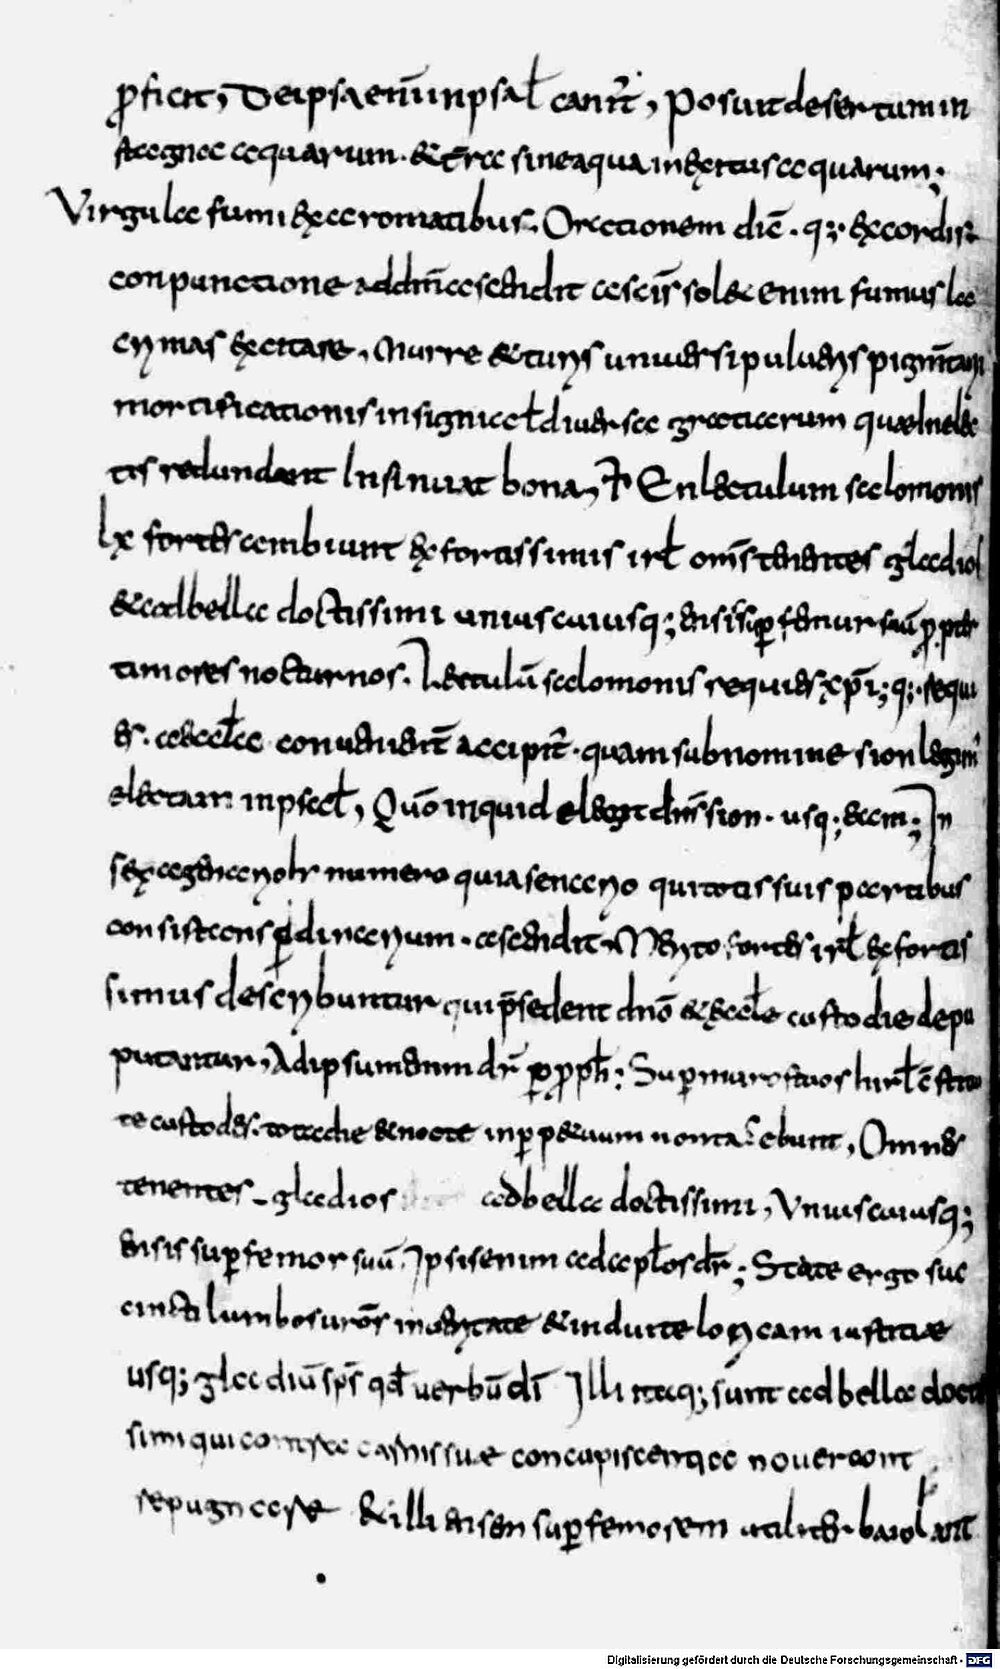 ꝓficit, De ipsa enī in psaƚ canit̄, Posuit desertum in
stagna aquarum · & t̄rā sine aqua in exitus aquarum;
Virgula fumi ex aromatibus, Orationem dic̄ · q; · ex cordis
conpunctione ad dn̄m ascendit as eis solet enim fumus la
crymas excitare, Murre & turis uniuersi puluens pigmtarii
mortificationis insignia ƚ diuersa gratiarum quæ in elec
tis redundant Insinuat bona, En lectulum salomonis
lx fortes ambiunt ex fortissimis isrƚ om̄s tenentes gladios
& ad bella doctissimi uniuscuiusq; ensis sup̱ femur suū ꝓpter
timores nocturnos. Lectulū salomonis requies xp̄i; q; · requi
es · aeccƚa conuenienr̄ accipit̄ · quam sub nomine sion legim̄
electam in psaƚ, Quō inquid elegit dn̄s sion · usq; eam; In
sexagenario numero quia senario qui totis suis partibus
consistens ꝑ dinarium · ascendit, Merito fortes isrƚ ex fortis
simis describuntur qui p̄sedent dn̄o & eccƚe custodie depu
putantur, Ad ipsum enim dr̄ p̱ ꝓph; Sup̱ muros tuos hirƚ c̄stitu
te custodes · tota die & nocte inp̱p&uum non tacebunt, Omnes
tenentes gladios ad bella doctissimi, Vniuscuiusq;
ensis sup̱ femor suū. Ipsis enim ad apƚos dr̄; State ergo suc
cincti lumbos uros̄ in ueritate & induite loricam iustitiæ
usq; gladiū sp̄s qđ uerbū dī Illi itaq; sunt ad bella doctis
simi qui contra carnis sue concupiscentia nouerunt
repugnare & illi ensen sup̱ femorem utiliter baiolant
Digitalisierung gefördert durch die Deutsche Forschungsgemeinschaft - DFG